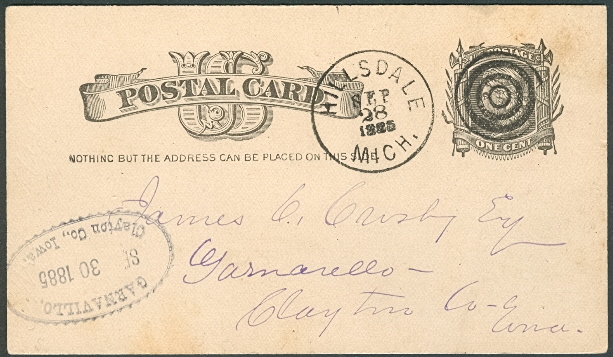 U.S. POSTAGE
US
POSTAL CARD
HILLSDALE
SEP
28
1885
MICH.
ONE CENT
NOTHING BUT THE ADDRESS CAN BE PLACED ON THIS SIDE
James O. Crosby Esq
Garnavillo -
Clayton Co -
Iowa.
GARNAVILLO,
SE 30 1885
Clayton Co., Iowa.